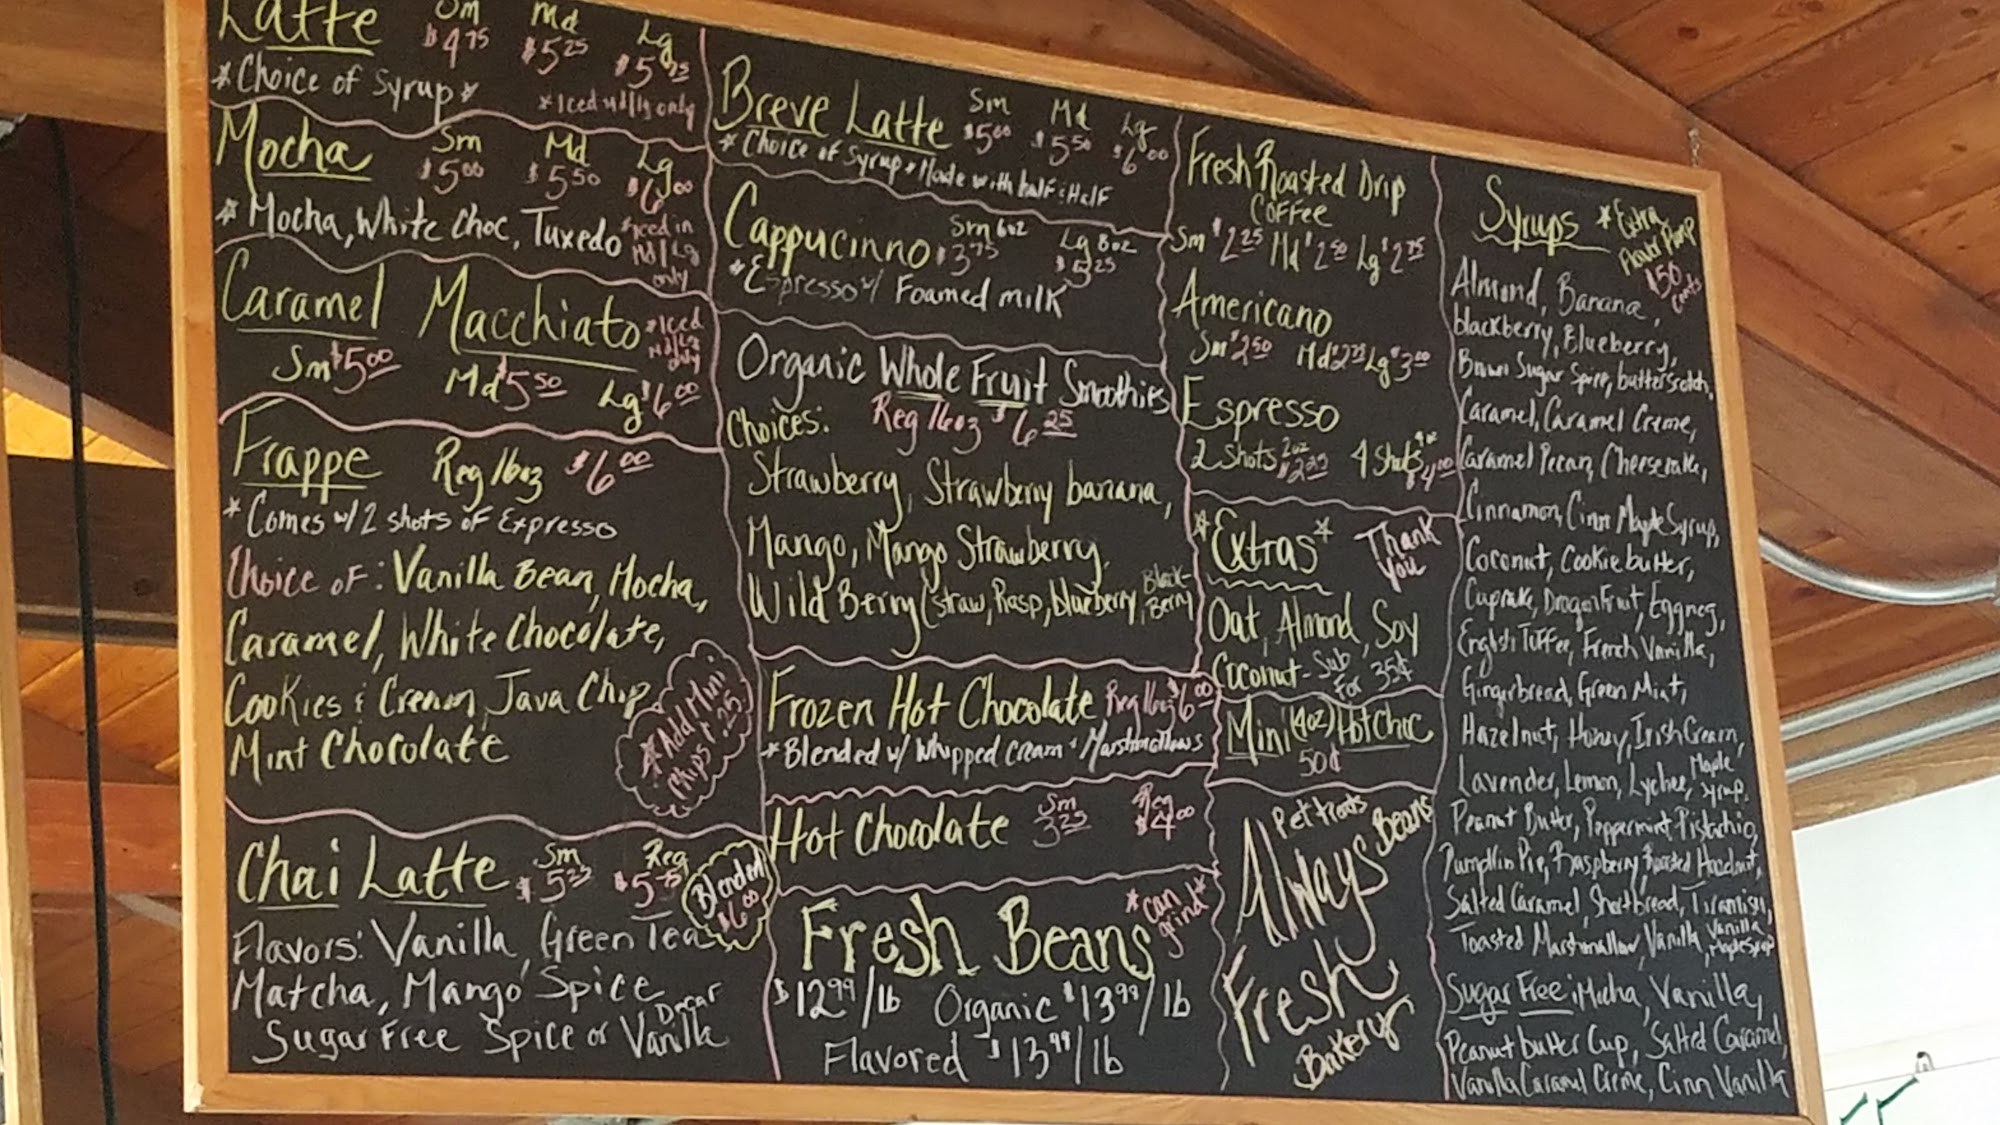 Latte Sm Md Lg
$4 75 $5 25 $5 75
*Choice of Syrup* *Iced md/lg only
Mocha Sm Md Lg
$5 00 $5 50 $6 00
*Mocha, White Choc, Tuxedo *Iced in
Md/Lg
only
Caramel Macchiato *Iced
Md/Lg
only
Sm $5 00 Md $5 50 Lg $6 00
Frappe Reg 16oz $6 00
*Comes w/2 shots of Expresso
Choice of: Vanilla Bean, Mocha,
Caramel, White Chocolate,
Cookies & Cream, Java Chip
Mint Chocolate
*Add Mini
Chips! .25
Chai Latte Sm Reg
$5 25 $5 75
Blended
$6 00
Flavors: Vanilla, Green Tea
Matcha, Mango Spice
Sugar Free Spice or Decaf Vanilla
Breve Latte Sm Md Lg
$5 00 $5 50 $6 00
*Choice of Syrup * Made with half & Half
Cappucinno Sm 6oz Lg 8oz
$3 75 $5 25
*Espresso w/ Foamed milk
Organic Whole Fruit Smoothies
Choices: Reg 16oz $6 25
Strawberry, Strawberry banana,
Mango, Mango Strawberry,
Wild Berry (straw, Rasp, blueberry, Black-
Berry
Frozen Hot Chocolate Reg 16oz $6 00
*Blended w/ Whipped Cream & Marshmallows
Hot Chocolate Sm Reg
3 25 $4 00
Fresh Beans *can
grind*
$12 99/lb Organic $13 99/lb
Flavored $13 99/lb
Fresh Roasted Drip
Coffee
Sm $2 25 Md $2 50 Lg $2 75
Americano
Sm $2 50 Md $2 75 Lg $3 00
Espresso
2 Shots 2oz 4 Shots 4oz
$4 00
*Extras* Thank
You
Oat, Almond, Soy
Coconut - Sub
For 35¢
Mini (4oz) Hot Choc
50¢
Pet treats
Always
Beans
Fresh
Bakery
Syrups *Extra
Flavor Pump
50 cents
Almond, Banana,
blackberry, Blueberry,
Brown Sugar Spice, butterscotch,
Caramel, Caramel Creme,
Caramel Pecan, Cheesecake,
Cinnamon, Cinn Maple Syrup,
Coconut, Cookie butter,
Cupcake, Dragonfruit, Eggnog,
English Toffee, French Vanilla,
Gingerbread, Green Mint,
Hazelnut, Honey, Irish Cream,
Lavender, Lemon, Lychee, Maple
Syrup,
Peanut Butter, Peppermint, Pistachio,
Pumpkin Pie, Raspberry, Roasted Hazelnut,
Salted Caramel, Shortbread, Tiramisu,
Toasted Marshmallow, Vanilla, Vanilla
Maple Syrup
Sugar Free: Mocha, Vanilla,
Peanut butter Cup, Salted Caramel,
Vanilla Caramel Creme, Cinn Vanilla